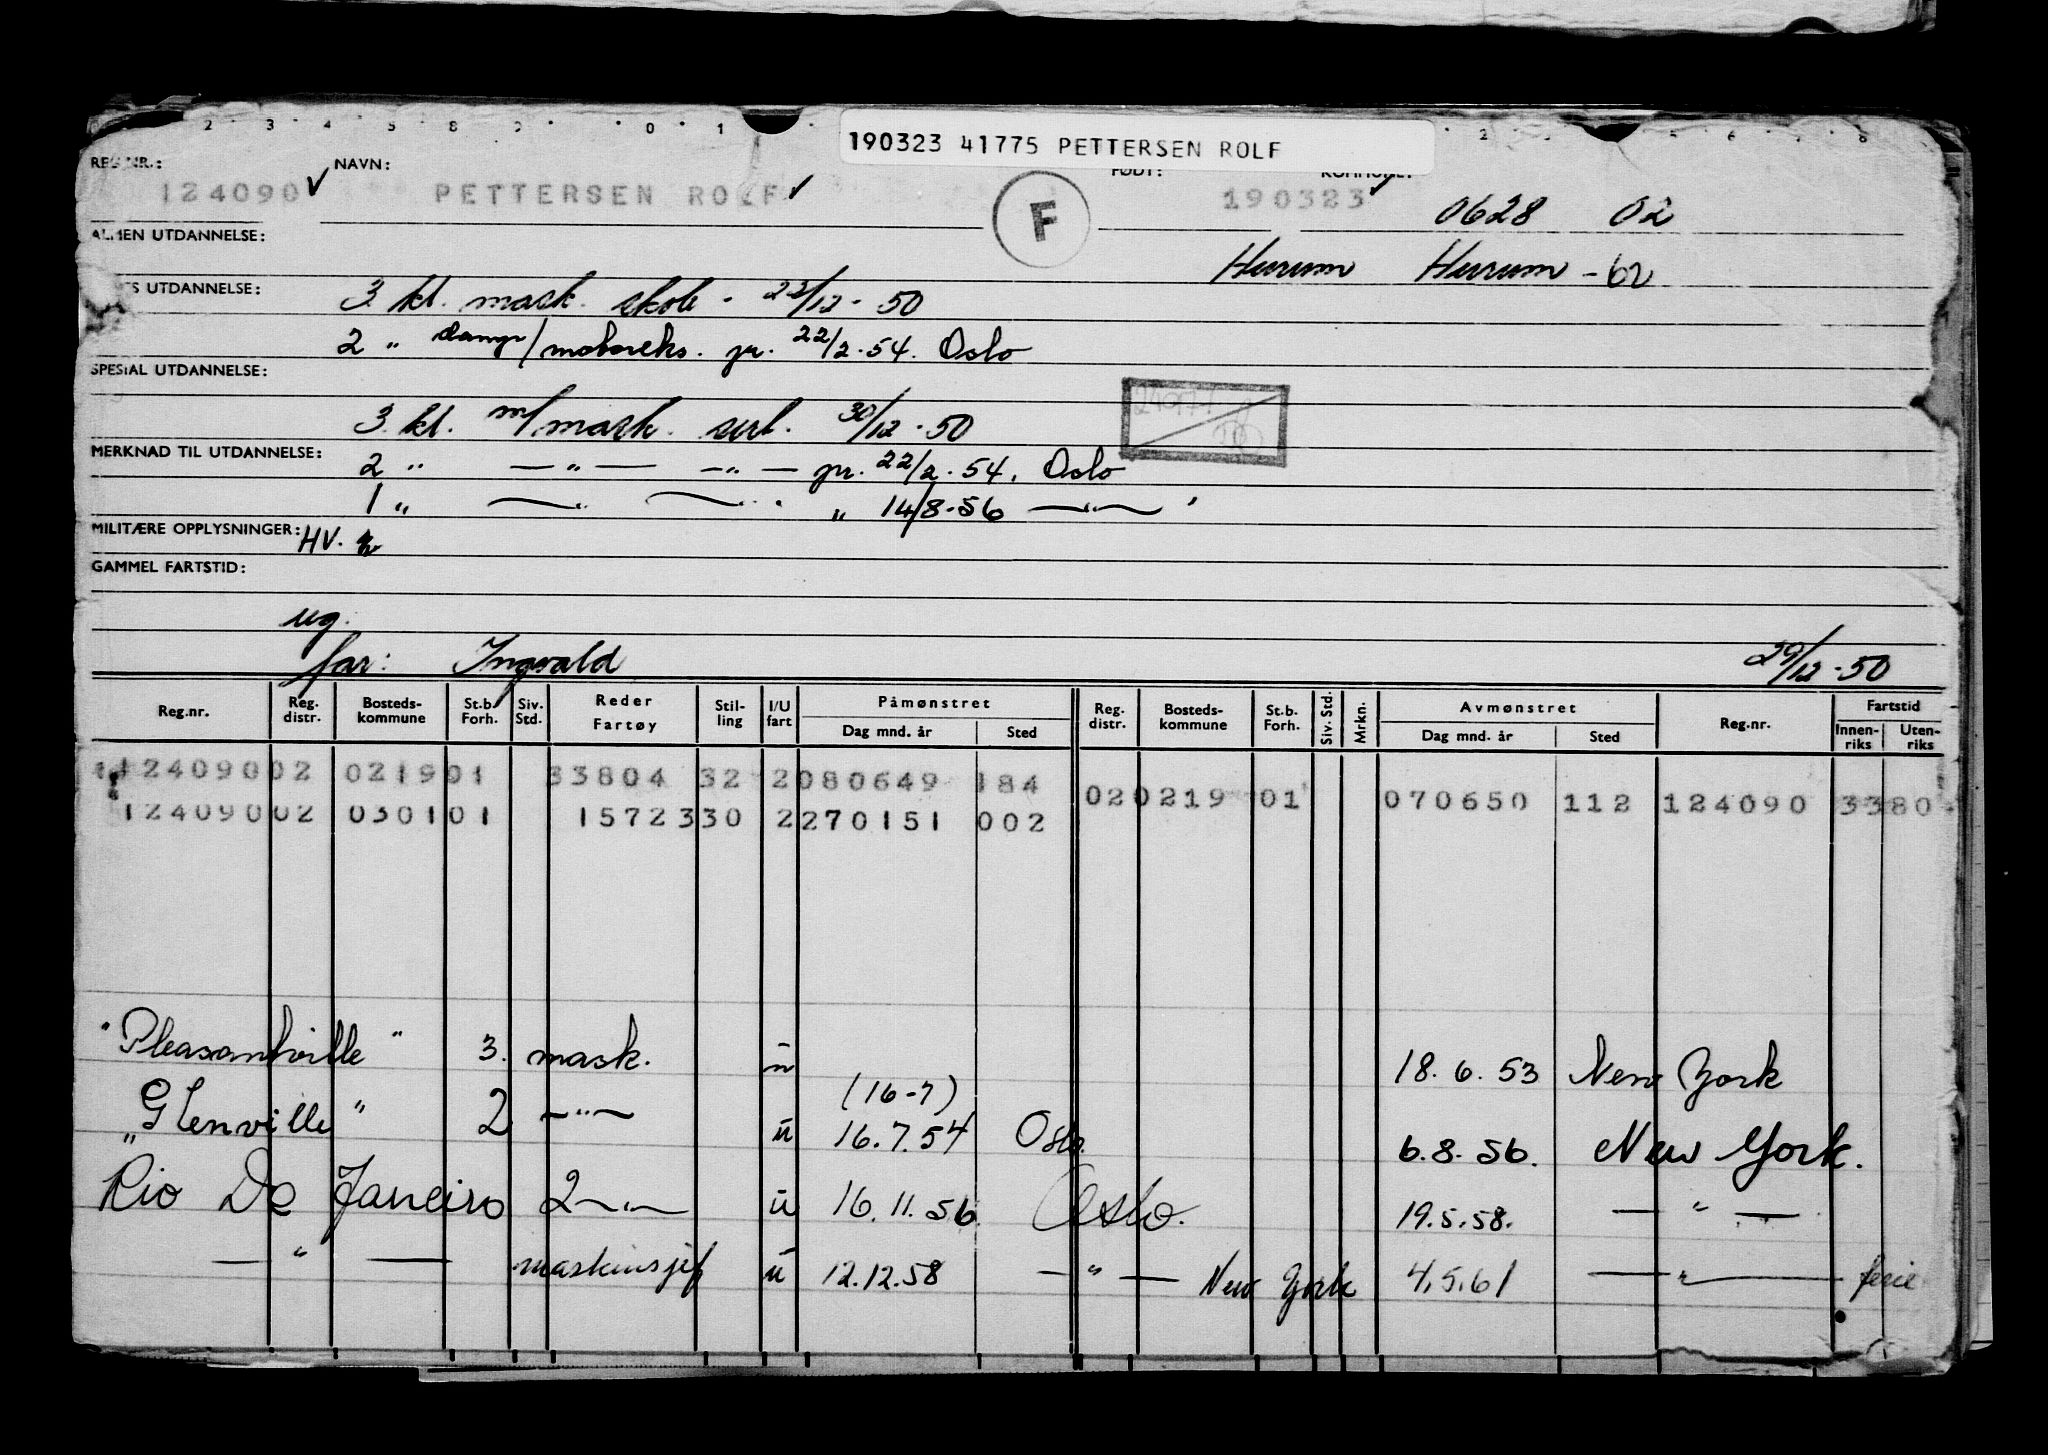 190323 41775 PETTERSEN ROLF
REG.NR.: NAVN: FØDT: KOMMUNE:
124090 PETTERSEN ROLF F 190323 0628 02
ALMEN UTDANNELSE: Hurum Hurum -62
UTDANNELSE: 3 kl. mask. skole - 22/12 - 50
2 " damp/motoreks. pr. 22/2.54. Oslo
SPESIAL UTDANNELSE:
3. kl. m/mask. sert. 30/12.50
MERKNAD TIL UTDANNELSE: 2 " —"— —"— pr. 22/2.54. Oslo
1 " " 14/8-56 —"—
MILITÆRE OPPLYSNINGER: HV.
GAMMEL FARTSTID:
ug.
far: Ingvald 29/12-50
Reg.nr. Reg. distr. Bosteds-kommune St.b. Forh. Siv. Std. Reder Fartøy Stil-ling I/U fart Påmønstret Dag mnd. år Sted Reg. distr. Bosteds-kommune St.b. Forh. Siv. Std. Mrkn. Avmønstret Dag mnd. år Sted Reg.nr. Fartstid Innen-riks Uten-riks
124090 02 0219 01 33804 32 2 080649 184 02 0219 01 070650 112 124090 3380
124090 02 0301 01 15723 30 2 270151 002
"Pleasantville" 3. mask. u 18.6.53 New York
(16-7)
"Glenville" 2 —"— u 16.7.54 Oslo. 6.8.56. New York.
Rio De Janeiro 2 —"— u 16.11.56. Oslo. 19.5.58. —"—
—"— maskinsjef u 12.12.58 —"— New York 4.5.61 —"— ferie